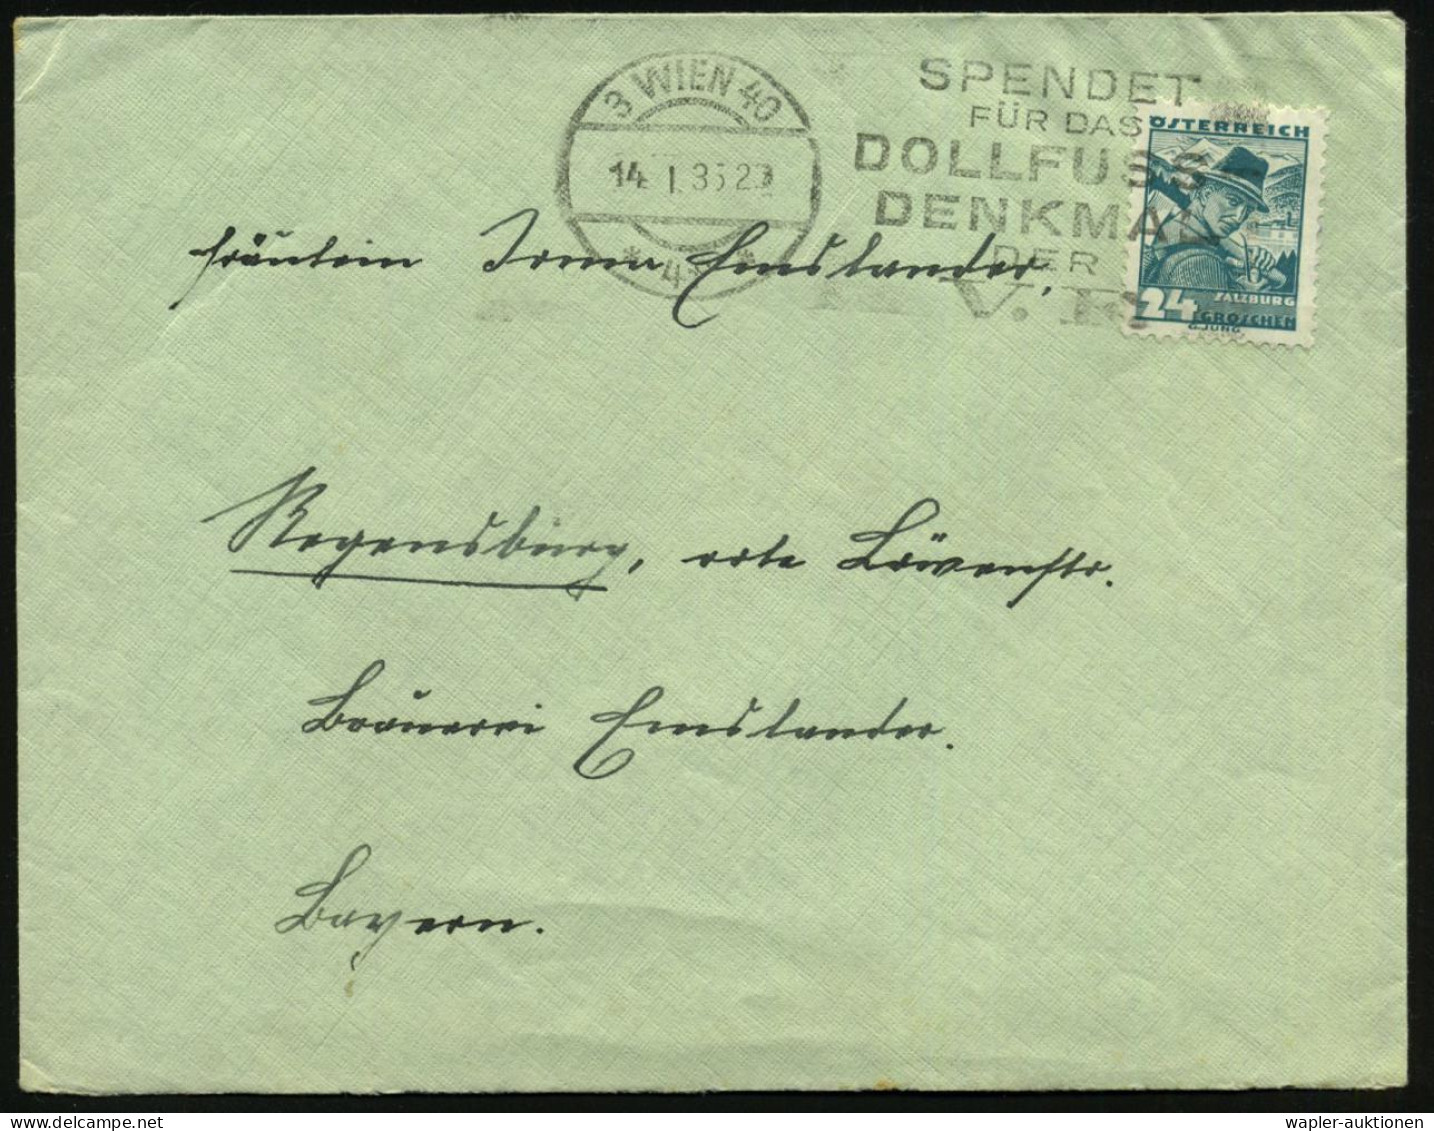 3 WIEN 40
14. I. 35 20
* 4f *
SPENDET
FÜR DAS
DOLLFUSS
DENKMAL
DER
V. F.
ÖSTERREICH
SALZBURG
24 GROSCHEN
Fräulein Irma Emslander,
Regensburg, rote Löwenstr.
Brauerei Emslander.
Bayern.
wapler-auktionen